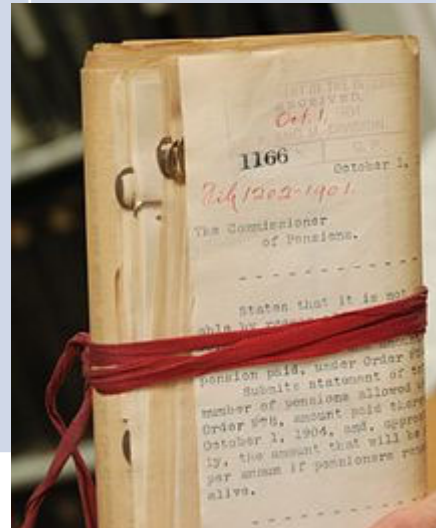 RECEIVED.
Oct. 1,
1166
October 1,
File 1202-1901.
The Commissioner
of Pensions.
States that it is not
able by
pension paid, under Order
Submits statement of
number of pensions allowed
Order amount paid
October 1, 1904, and,
ly, the amount that will be
per annum if pensioners
alive.